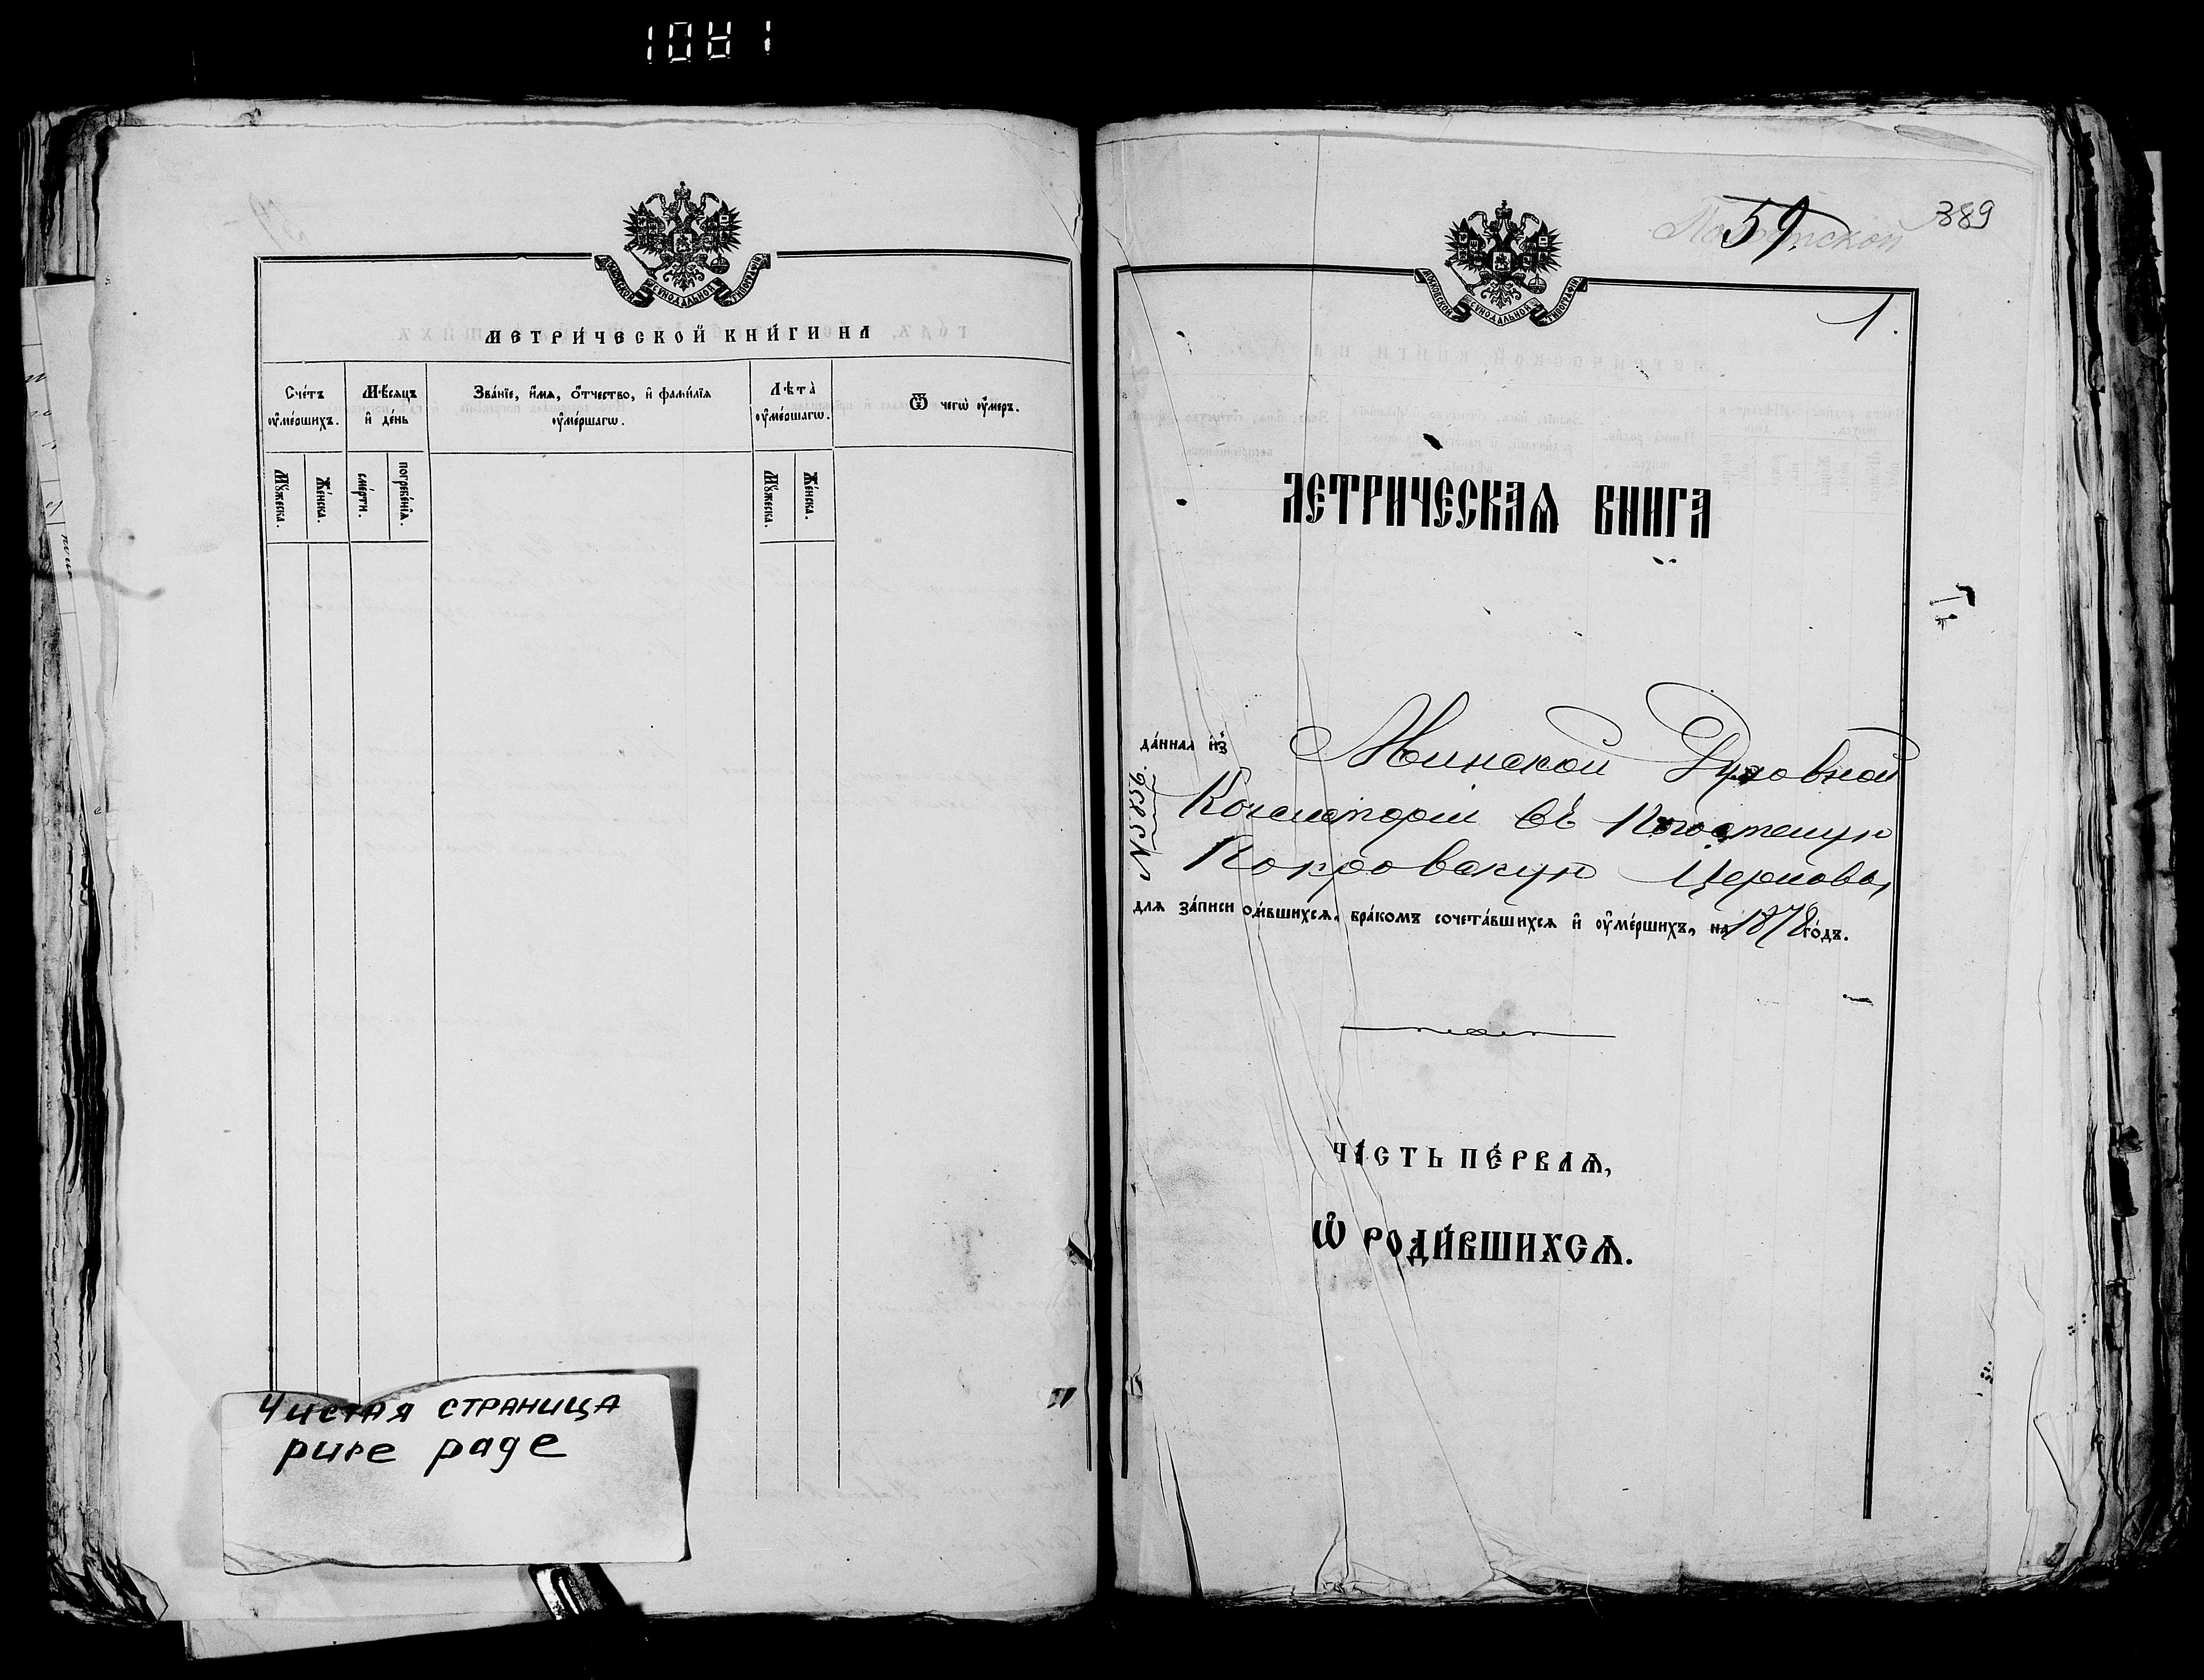 МЕТРИ́ЧЕСКОЙ КНИ́ГИ НА
Сче́тъ оу҆ме́ршихъ.
Мѣ́сяцъ и҆ де́нь
Зва́нїе, и҆́мѧ, ѻ҆́тчество, и҆ фами́лїѧ оу҆ме́ршагѡ.
Лѣ́та оу҆ме́ршагѡ.
Ѿ чегѡ̀ оу҆́меръ.
Мꙋ́жеска.
Же́нска.
сме́рти.
погребе́нїѧ.
Мꙋ́жеска.
Же́нска.
Чистая страница
pure page
МОСКОВСКОЙ СѴНОДАЛЬНОЙ ТИПОГРАФІИ
59.
389
1.
МЕТРИЧЕСКАѦ КНИГА
да́ннаѧ и҆з̾ Минской Духовной
Консисторіи въ Погостскую
Покровскую Церковь,
№ 5856.
длѧ за́писи оди́вшихсѧ, бра́комъ сочета́вшихсѧ и҆ оу҆ме́ршихъ, на 1878 го́дъ.
ЧА́СТЬ ПЕ́РВАѦ,
Ѡ҆ РОДИ́ВШИХСѦ.